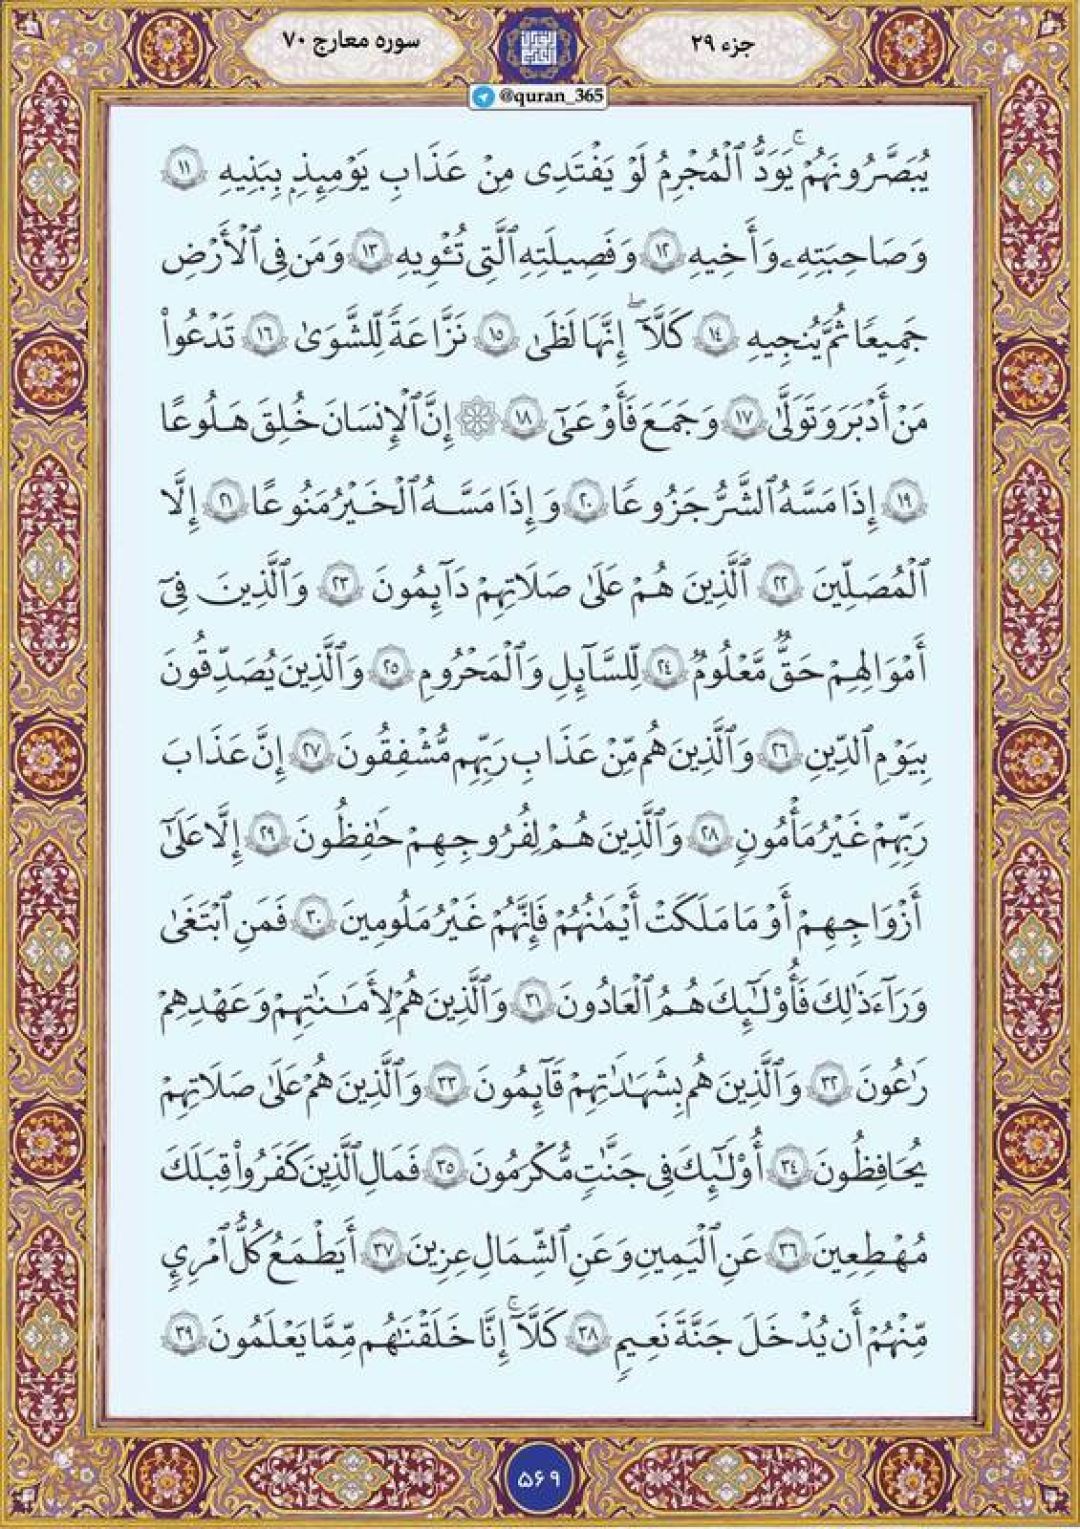 جزء ۲۹
سوره معارج ۷۰
@quran_365
يُبَصَّرُونَهُمْ ۚ يَوَدُّ ٱلْمُجْرِمُ لَوْ يَفْتَدِى مِنْ عَذَابِ يَوْمِئِذٍۭ بِبَنِيهِ ۱۱
وَصَاحِبَتِهِۦ وَأَخِيهِ ۱۲ وَفَصِيلَتِهِ ٱلَّتِى تُـْٔوِيهِ ۱۳ وَمَن فِى ٱلْأَرْضِ
جَمِيعًا ثُمَّ يُنجِيهِ ۱٤ كَلَّآ ۖ إِنَّهَا لَظَىٰ ۱٥ نَزَّاعَةً لِّلشَّوَىٰ ۱٦ تَدْعُوا۟
مَنْ أَدْبَرَ وَتَوَلَّىٰ ۱۷ وَجَمَعَ فَأَوْعَىٰٓ ۱۸ ۞ إِنَّ ٱلْإِنسَانَ خُلِقَ هَلُوعًا
۱۹ إِذَا مَسَّهُ ٱلشَّرُّ جَزُوعًا ۲۰ وَإِذَا مَسَّهُ ٱلْخَيْرُ مَنُوعًا ۲۱ إِلَّا
ٱلْمُصَلِّينَ ۲۲ ٱلَّذِينَ هُمْ عَلَىٰ صَلَاتِهِمْ دَآئِمُونَ ۲۳ وَٱلَّذِينَ فِىٓ
أَمْوَالِهِمْ حَقٌّ مَّعْلُومٌ ۲٤ لِّلسَّآئِلِ وَٱلْمَحْرُومِ ۲٥ وَٱلَّذِينَ يُصَدِّقُونَ
بِيَوْمِ ٱلدِّينِ ۲٦ وَٱلَّذِينَ هُم مِّنْ عَذَابِ رَبِّهِم مُّشْفِقُونَ ۲۷ إِنَّ عَذَابَ
رَبِّهِمْ غَيْرُ مَأْمُونٍ ۲۸ وَٱلَّذِينَ هُمْ لِفُرُوجِهِمْ حَٰفِظُونَ ۲۹ إِلَّا عَلَىٰٓ
أَزْوَاجِهِمْ أَوْ مَا مَلَكَتْ أَيْمَٰنُهُمْ فَإِنَّهُمْ غَيْرُ مَلُومِينَ ۳۰ فَمَنِ ٱبْتَغَىٰ
وَرَآءَ ذَٰلِكَ فَأُو۟لَٰٓئِكَ هُمُ ٱلْعَادُونَ ۳۱ وَٱلَّذِينَ هُمْ لِأَمَٰنَٰتِهِمْ وَعَهْدِهِمْ
رَٰعُونَ ۳۲ وَٱلَّذِينَ هُم بِشَهَٰدَٰتِهِمْ قَآئِمُونَ ۳۳ وَٱلَّذِينَ هُمْ عَلَىٰ صَلَاتِهِمْ
يُحَافِظُونَ ۳٤ أُو۟لَٰٓئِكَ فِى جَنَّٰتٍ مُّكْرَمُونَ ۳٥ فَمَالِ ٱلَّذِينَ كَفَرُوا۟ قِبَلَكَ
مُهْطِعِينَ ۳٦ عَنِ ٱلْيَمِينِ وَعَنِ ٱلشِّمَالِ عِزِينَ ۳۷ أَيَطْمَعُ كُلُّ ٱمْرِئٍ
مِّنْهُمْ أَن يُدْخَلَ جَنَّةَ نَعِيمٍ ۳۸ كَلَّآ ۚ إِنَّا خَلَقْنَٰهُم مِّمَّا يَعْلَمُونَ ۳۹
۵۶۹